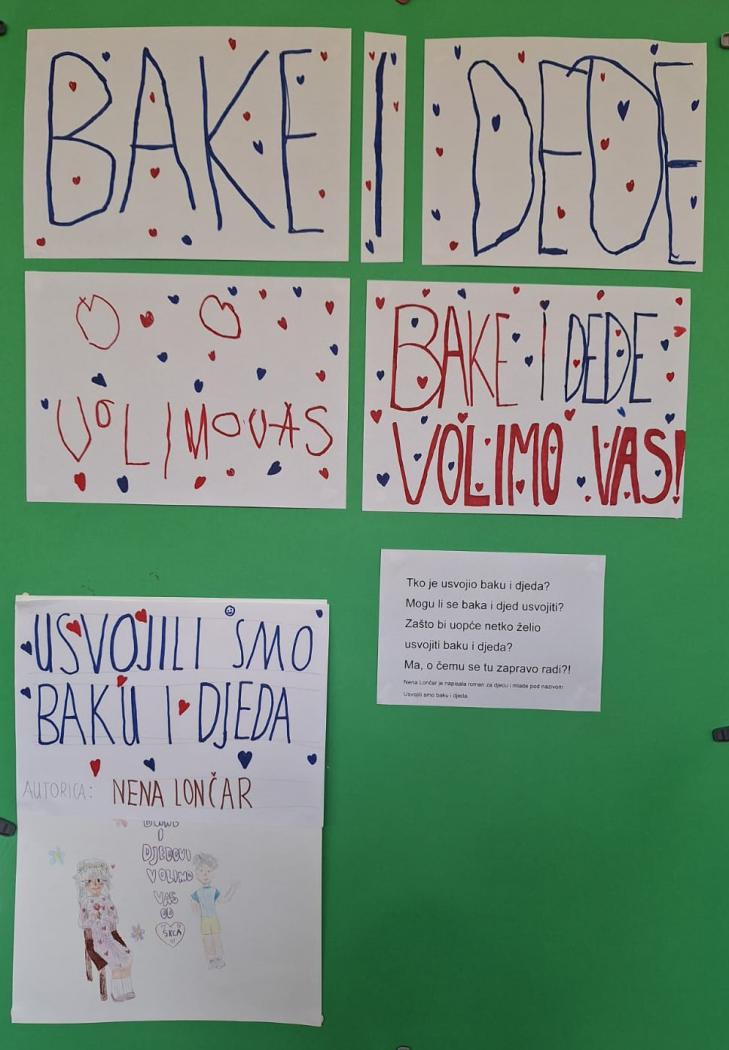 BAKE I DEDE
VOLIMO VAS
BAKE I DEDE
VOLIMO VAS!
Tko je usvojio baku i djeda?
Mogu li se baka i djed usvojiti?
Zašto bi uopće netko želio
usvojiti baku i djeda?
Ma, o čemu se tu zapravo radi?!
Nena Lončar je napisala roman za djecu i mlade pod nazivom
Usvojili smo baku i djeda.
USVOJILI SMO
BAKU I DJEDA
AUTORICA: NENA LONČAR
I
DJEDOVI
VOLIMO
VAS
OD
SRCA